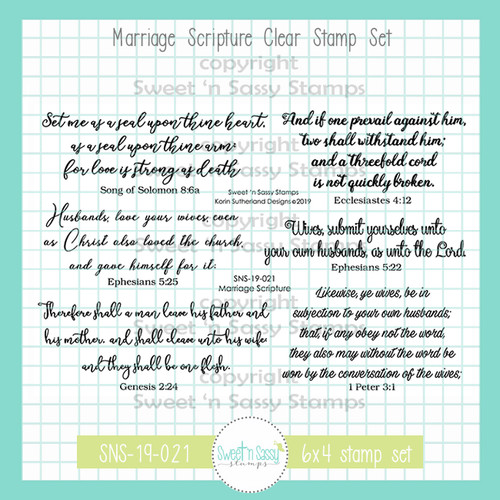 Marriage Scripture Clear Stamp Set
copyright
Sweet 'n Sassy Stamps
Set me as a seal upon thine heart,
as a seal upon thine arm:
for love is strong as death
Song of Solomon 8:6a
And if one prevail against him,
two shall withstand him;
and a threefold cord
is not quickly broken.
Ecclesiastes 4:12
Sweet 'n Sassy Stamps
Korin Sutherland Designs ©2019
Husbands, love your wives, even
as Christ also loved the church,
and gave himself for it.
Ephesians 5:25
copyright
Sweet 'n Sassy Stamps
Wives, submit yourselves unto
your own husbands, as unto the Lord.
Ephesians 5:22
SNS-19-021
Marriage Scripture
copyright
Sweet 'n Sassy Stamps
Therefore shall a man leave his father and
his mother, and shall cleave unto his wife:
and they shall be one flesh.
Genesis 2:24
Likewise, ye wives, be in
subjection to your own husbands;
that, if any obey not the word,
they also may without the word be
won by the conversation of the wives;
1 Peter 3:1
copyright
Sweet 'n Sassy Stamps
SNS-19-021
Sweet 'n Sassy
stamps
6x4 stamp set